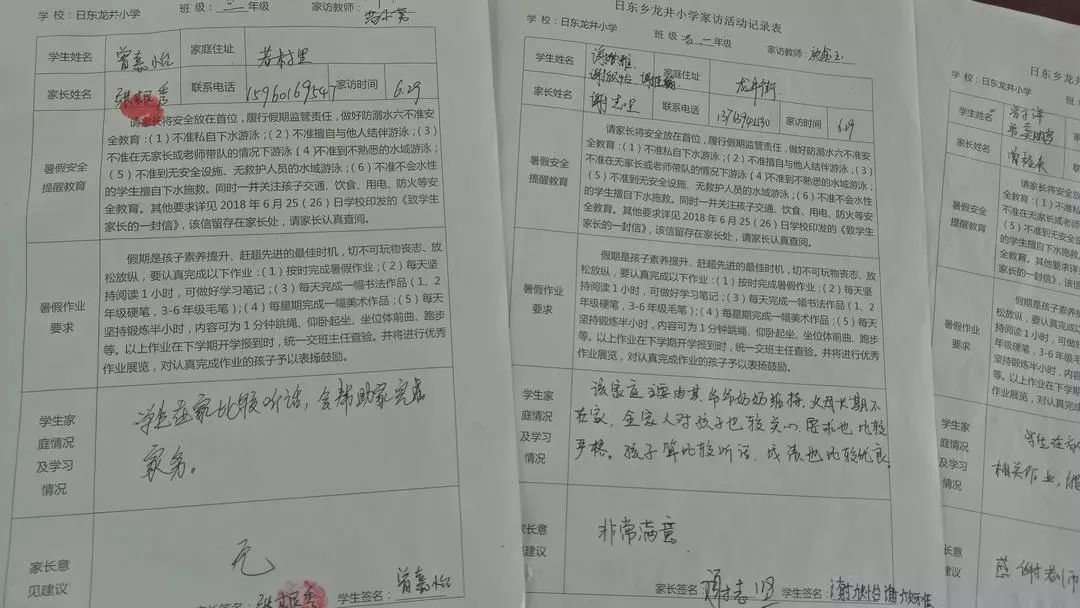 学 校：日东龙井小学 班 级： 二 年级 家访教师：
学生姓名 曾嘉怡 家庭住址
家长姓名 联系电话 15960169547 家访时间 6.29
暑假安全
提醒教育
请家长将安全放在首位，履行假期监管责任，做好防溺水六不准安
全教育：（1）不准私自下水游泳；（2）不准擅自与他人结伴游泳；（3）
不准在无家长或老师带队的情况下游泳（4）不准到不熟悉的水域游泳；
（5）不准到无安全设施、无救护人员的水域游泳；（6）不准不会水性
的学生擅自下水施救。同时一并关注孩子交通、饮食、用电、防火等安
全教育。其他要求详见 2018 年 6 月 25（26）日学校印发的《致学生
家长的一封信》，该信留存在家长处，请家长认真查阅。
暑假作业
要求
假期是孩子素养提升、赶超先进的最佳时机，切不可玩物丧志、放
松放纵，要认真完成以下作业：（1）按时完成暑假作业；（2）每天坚
持阅读 1 小时，可做好学习笔记；（3）每天完成一幅书法作品（1、2
年级硬笔，3-6 年级毛笔）；（4）每星期完成一幅美术作品；（5）每天
坚持锻炼半小时，内容可为 1 分钟跳绳、仰卧起坐、坐位体前曲、跑步
等。以上作业在下学期开学报到时，统一交班主任查验。并将进行优秀
作业展览，对认真完成作业的孩子予以表扬鼓励。
学生家
庭情况
及学习
情况
学生在家比较听话，会帮助家完成
家务。
家长意
见建议
无
家长签名： 学生签名：曾嘉怡
日东乡龙井小学家访活动记录表
学 校：日东龙井小学 班 级： 二 年级 家访教师：
学生姓名 家庭住址 龙井街
家长姓名 联系电话 家访时间 6.29
暑假安全
提醒教育
请家长将安全放在首位，履行假期监管责任，做好防溺水六不准安
全教育：（1）不准私自下水游泳；（2）不准擅自与他人结伴游泳；（3）
不准在无家长或老师带队的情况下游泳（4）不准到不熟悉的水域游泳；
（5）不准到无安全设施、无救护人员的水域游泳；（6）不准不会水性
的学生擅自下水施救。同时一并关注孩子交通、饮食、用电、防火等安
全教育。其他要求详见 2018 年 6 月 25（26）日学校印发的《致学生
家长的一封信》，该信留存在家长处，请家长认真查阅。
暑假作业
要求
假期是孩子素养提升、赶超先进的最佳时机，切不可玩物丧志、放
松放纵，要认真完成以下作业：（1）按时完成暑假作业；（2）每天坚
持阅读 1 小时，可做好学习笔记；（3）每天完成一幅书法作品（1、2
年级硬笔，3-6 年级毛笔）；（4）每星期完成一幅美术作品；（5）每天
坚持锻炼半小时，内容可为 1 分钟跳绳、仰卧起坐、坐位体前曲、跑步
等。以上作业在下学期开学报到时，统一交班主任查验。并将进行优秀
作业展览，对认真完成作业的孩子予以表扬鼓励。
学生家
庭情况
及学习
情况
该家庭主要由其爷爷奶奶维持，父母长期不
在家，全家人对孩子也较关心，要求也比较
严格。孩子算比较听话，成表也比较优良。
家长意
见建议
非常满意
家长签名： 学生签名：
日东乡龙井小
学 校：日东龙井小学
学生姓名
家长姓名
暑假安全
提醒教育
请家长将安
全教育：（1）不
不准在无家长
（5）不准到无
的学生擅自下
全教育。其他
家长的一封信
暑假作业
要求
假期是孩
松放纵，要认
持阅读 1 小时
年级硬笔，3-6
坚持锻炼半小
等。以上作业
作业展览，对
学生家
庭情况
及学习
情况
学生在
相关作业，
家长意
见建议
感谢老师